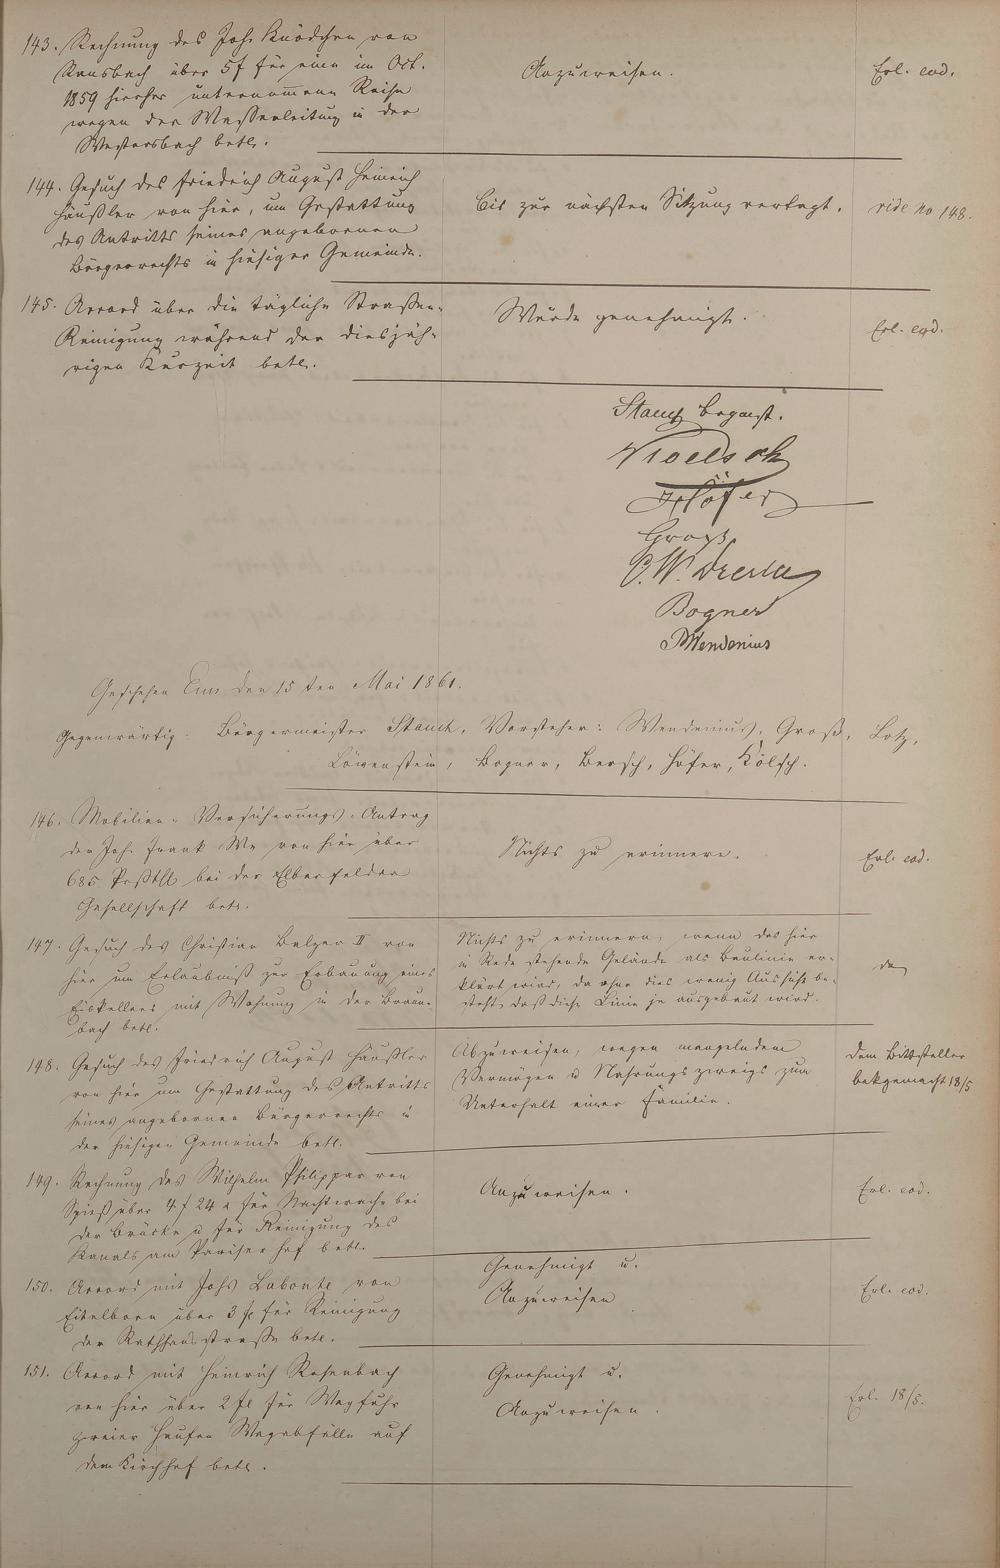 143. Rechnung des Joh. Knödchen von
Ransbach über 5 f für eine im Oct.
1859 hierher unternom̅ene Reise
wegen der Wasserleitung in der
Westersbach betr.
Anzuweisen.
Erl. eod.
144. Gesuch des Friedrich August Heinrich
Häußler von hier, um Gestattung
des Antritts seines angebornen
Bürgerrechts in hiesiger Gemeinde.
Bis zur nächsten Sitzung vertagt.
vide no 148.
145. Accord über die tägliche Straßen-
Reinigung während der diesjäh-
rigen Kurzeit betr.
Wurde genehmigt.
Erl. eod.
Höfer
Groß
Bogner
Wendenius
Geschehen Ems den 15ten Mai 1861.
Gegenwärtig: Bürgermeister Vorsteher: Wendenius, Groß, Lotz,
Löwenstein, Bogner, Bersch, Höfer, Kölsch.
146. Mobilien-Versicherungs-Antrag
der Joh. Frank We von hier über
685 bei der Elberfelder
Gesellschaft betr.
Nichts zu erinnern.
Erl. eod.
147. Gesuch des Christian Balzer II von
hier um Erlaubniß zur Erbauung eines
Eiskellers mit Wohnung in der Braun-
bach betr.
Nichts zu erinnern, wenn das hier
in Rede stehende Gelände als Baulinie er-
klärt wird, da ohne dies wenig Aussicht be-
steht, daß diese Linie je ausgebaut wird.
148. Gesuch des Friedrich August Häußler
von hier um Gestattung des Antritts
seines angebornen Bürgerrechts in
der hiesigen Gemeinde betr.
Abzuweisen, wegen mangelndem
Vermögen u Nahrungszweigs zum
Unterhalt einer Familie.
Dem Bittsteller
bekgemacht 18/5
149. Rechnung des Wilhelm Philippar von
Spieß über 4 f 24 x für Nachtwache bei
der Brücke u für Reinigung des
Kanals am Pariser Hof betr.
Anzuweisen.
Erl. eod.
150. Accord mit Johs Labonte von
Eitelborn über 3 fl für Reinigung
der Rathhausstraße betr.
Genehmigt u.
Anzuweisen
Erl. eod.
151. Accord mit Heinrich Rosenbach
von hier über 2 fl für Wegfuhr
zweier Haufen Wegabfälle auf
dem Kirchhof betr.
Genehmigt u.
Anzuweisen.
Erl. 18/5.